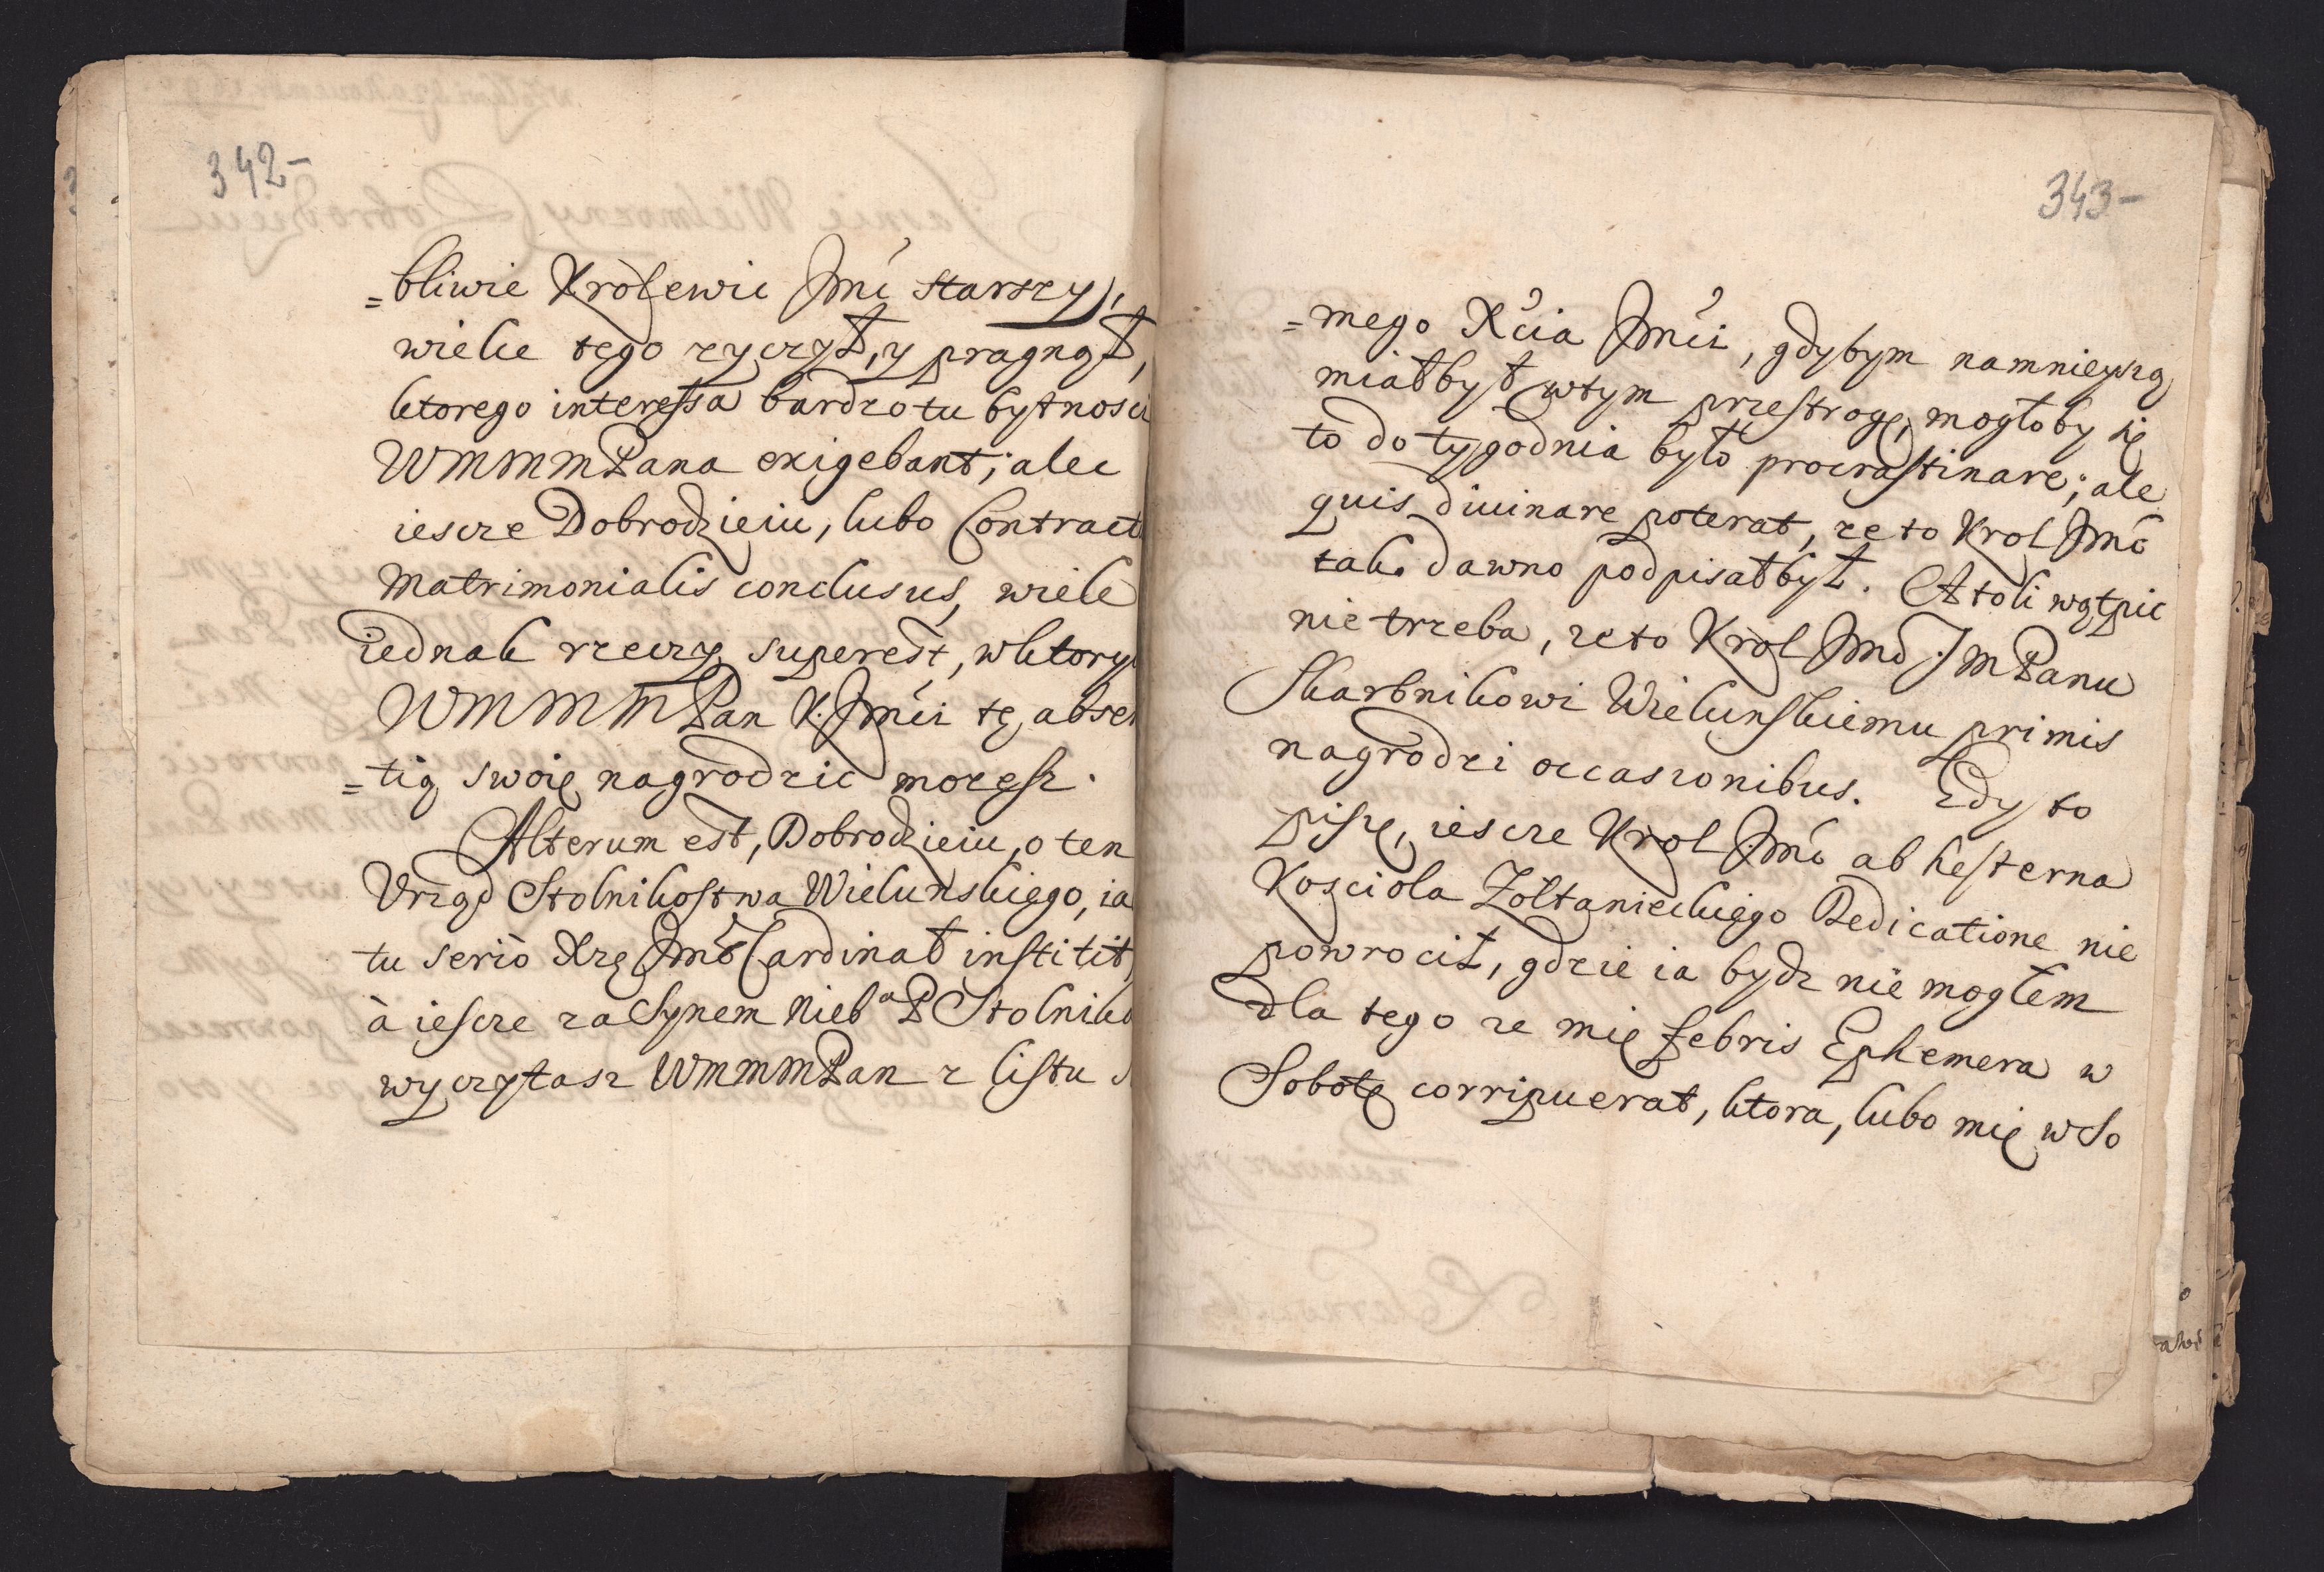 342-
=bliwie Krolewic Jmć starszy,
wielce tego zyczył, y pragnął,
ktorego interessa bardzo tu bytnosci
WMMMPana exigebant; alec
iescze Dobrodzieiu, lubo Contract
Matrimonialis conclusus, wiele
iednak rzeczy superest, w ktory
WMMMPan K. Jmći tę absen
=tią swoię nagrodzic mozesz.
Alterum est, Dobrodzieiu, o ten
Vrząd Stolnikostwa Wielunskiego, ia
tu seriò Xzę Jmć Cardinał institit,
à iescze za Synem Nieb^a P Stolniko
wyczytasz WMMMPan z listu
343-
=mego Xcia Jmći, gdybym namnieyszą
miał był w tym przestrogę, mogłoby się
to do tygodnia było procrastinare; ale
quis diuinare poterat, ze to Krol Jmć
tak dawno podpisał był. Atoli wątpic
nie trzeba, ze to Krol Jmć JMPanu
Skarbnikowi Wielunskiemu primis
nagrodzi occasionibus. Gdy to
piszę, iescze Krol Jmć ab hesterna
Kosciola Zoltanieckiego Dedicatione nie
powrocił, gdzie ia bydz nie mogłem
dla tego ze mię febris Ephemera w
Sobotę corripuerat, ktora, lubo mię w So